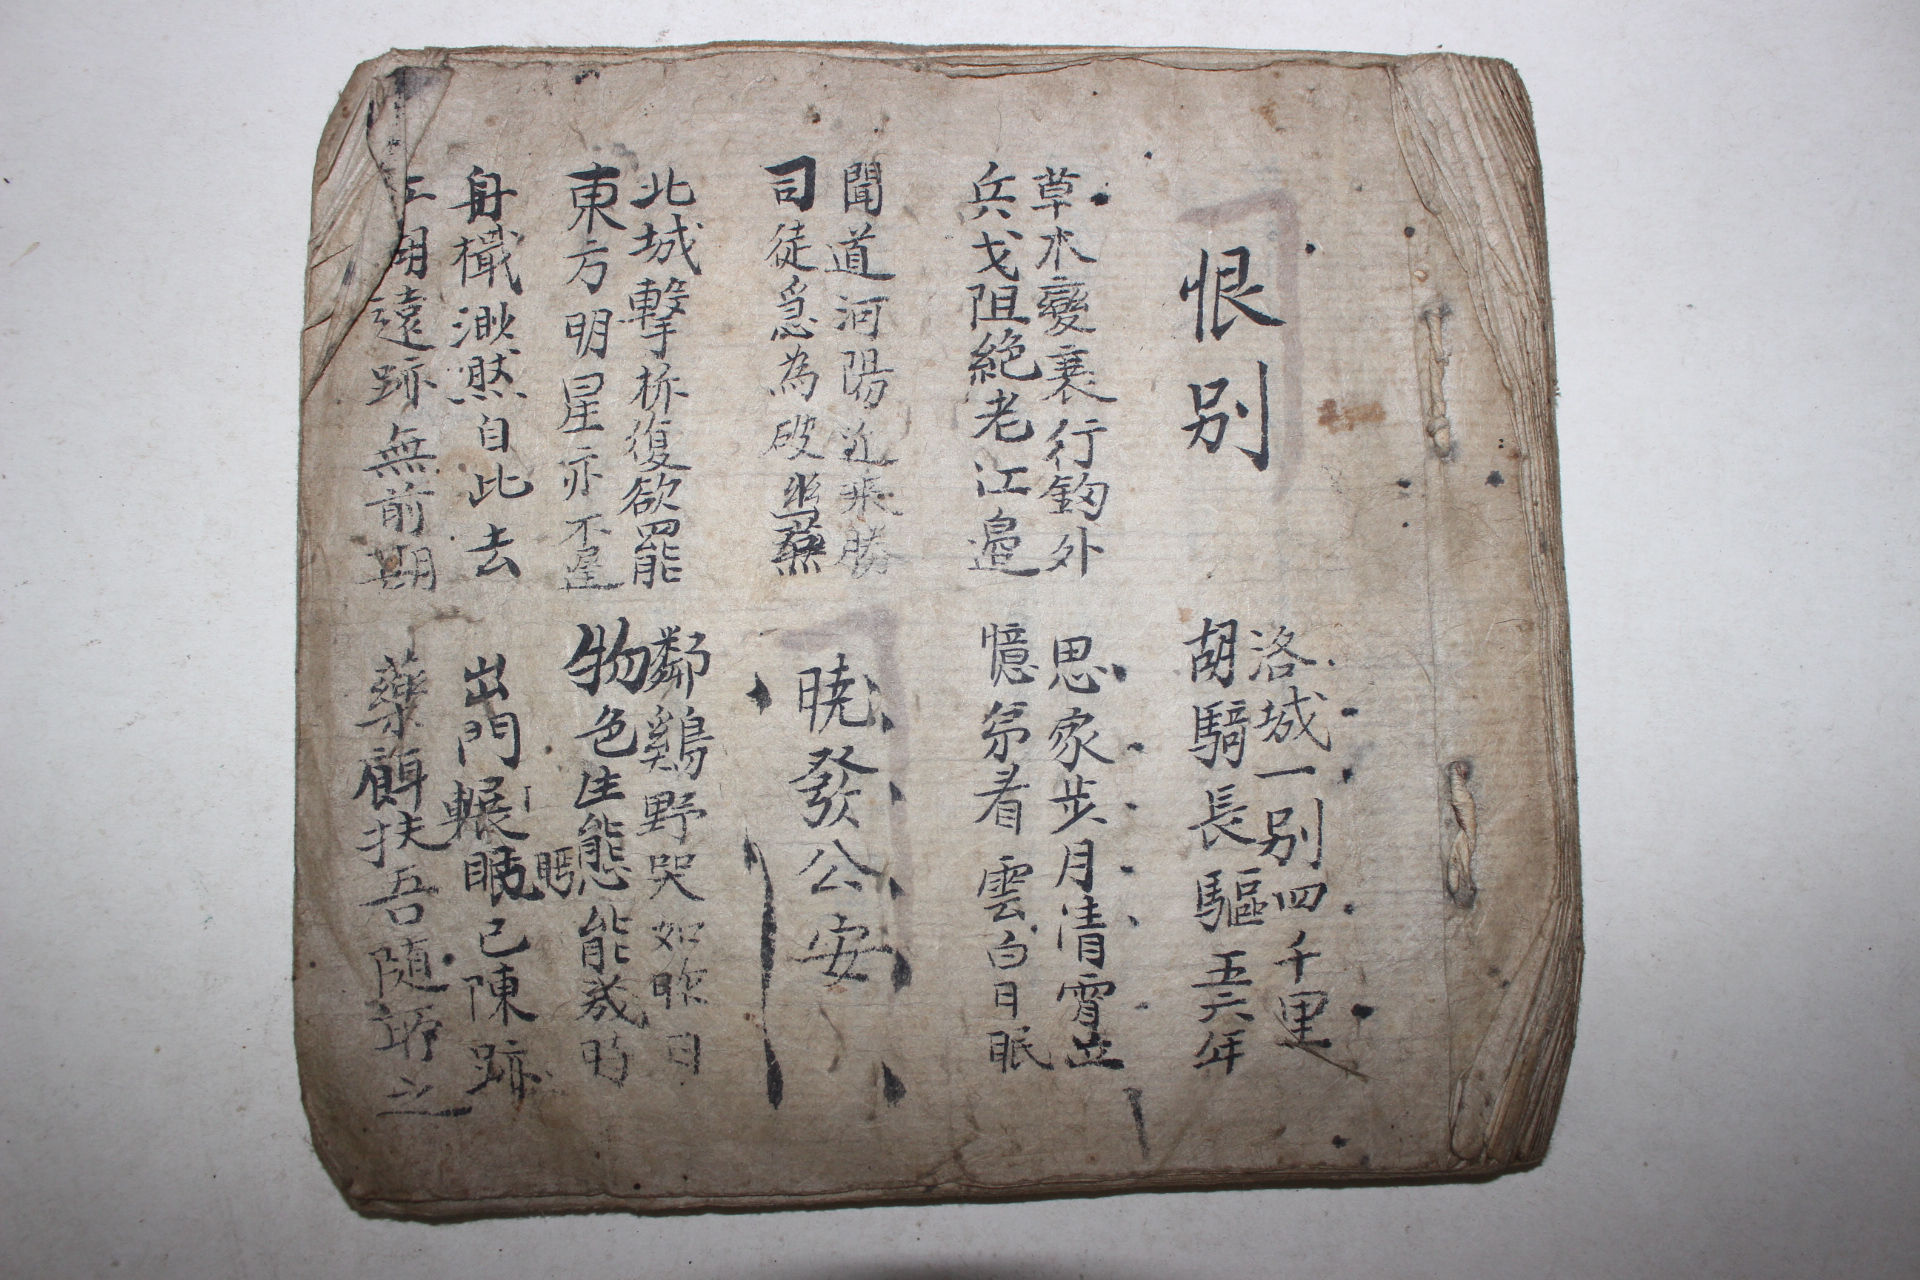 恨別
洛城一別四千里
胡騎長驅五六年
草木變衰行釼外
兵戈阻絶老江邉
思家步月清霄立
憶苐看雲白日眠
聞道河陽近乘勝
司徒急為破幽燕
暁發公安
北城擊柝復欲罷
東方明星亦不遲
鄰鷄野哭如昨日
物色生態能幾時
舟檝渺然自此去
湖遠跡無前期
出門輾眄已陳跡
眄
藥餌扶吾隨所之